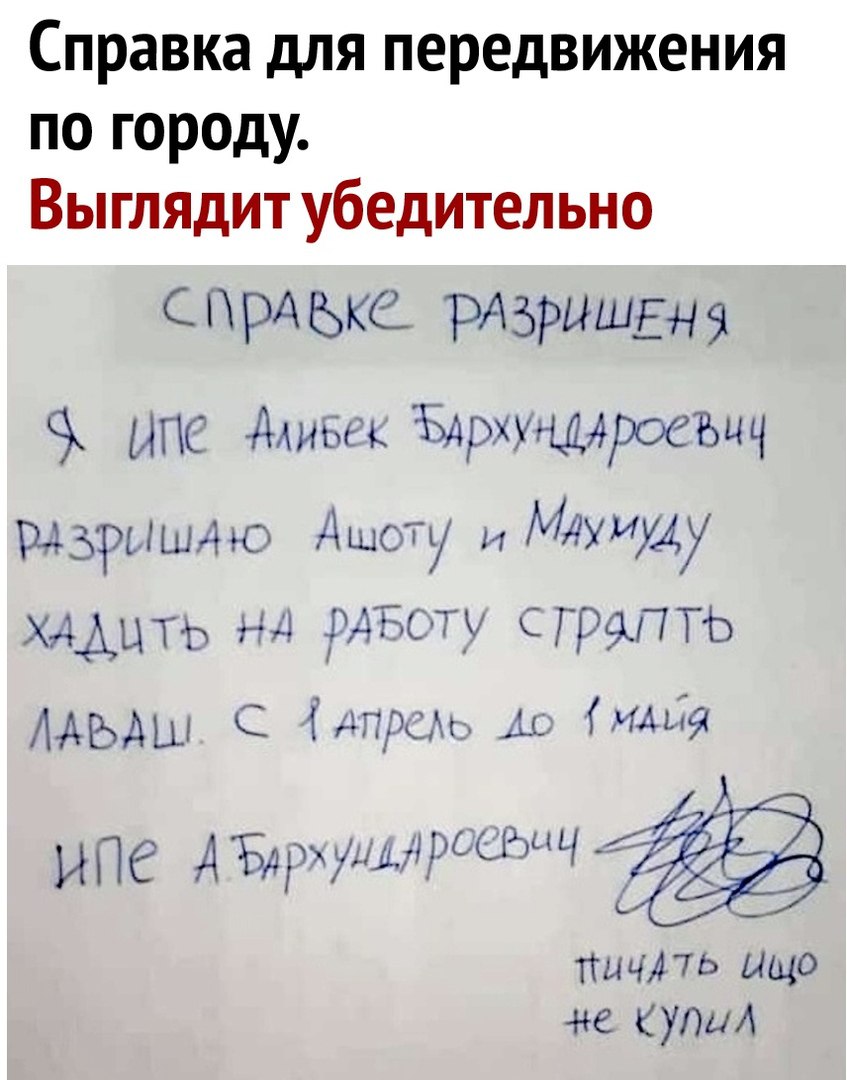 Справка для передвижения
по городу.
Выглядит убедительно
СПРАВКе РАЗРИШЕНЯ
Я ИПе Алибек БАРХУНДАРОеВич
РАЗРИШАЮ Ашоту и Махмуду
ХАДИТЬ НА РАБОТУ СТРЯПТЬ
ЛАВАШ. С 1 Апрель до 1 майя
ИПе А.БАРХУНДАРОеВич
пичАТЬ ищо
не купил